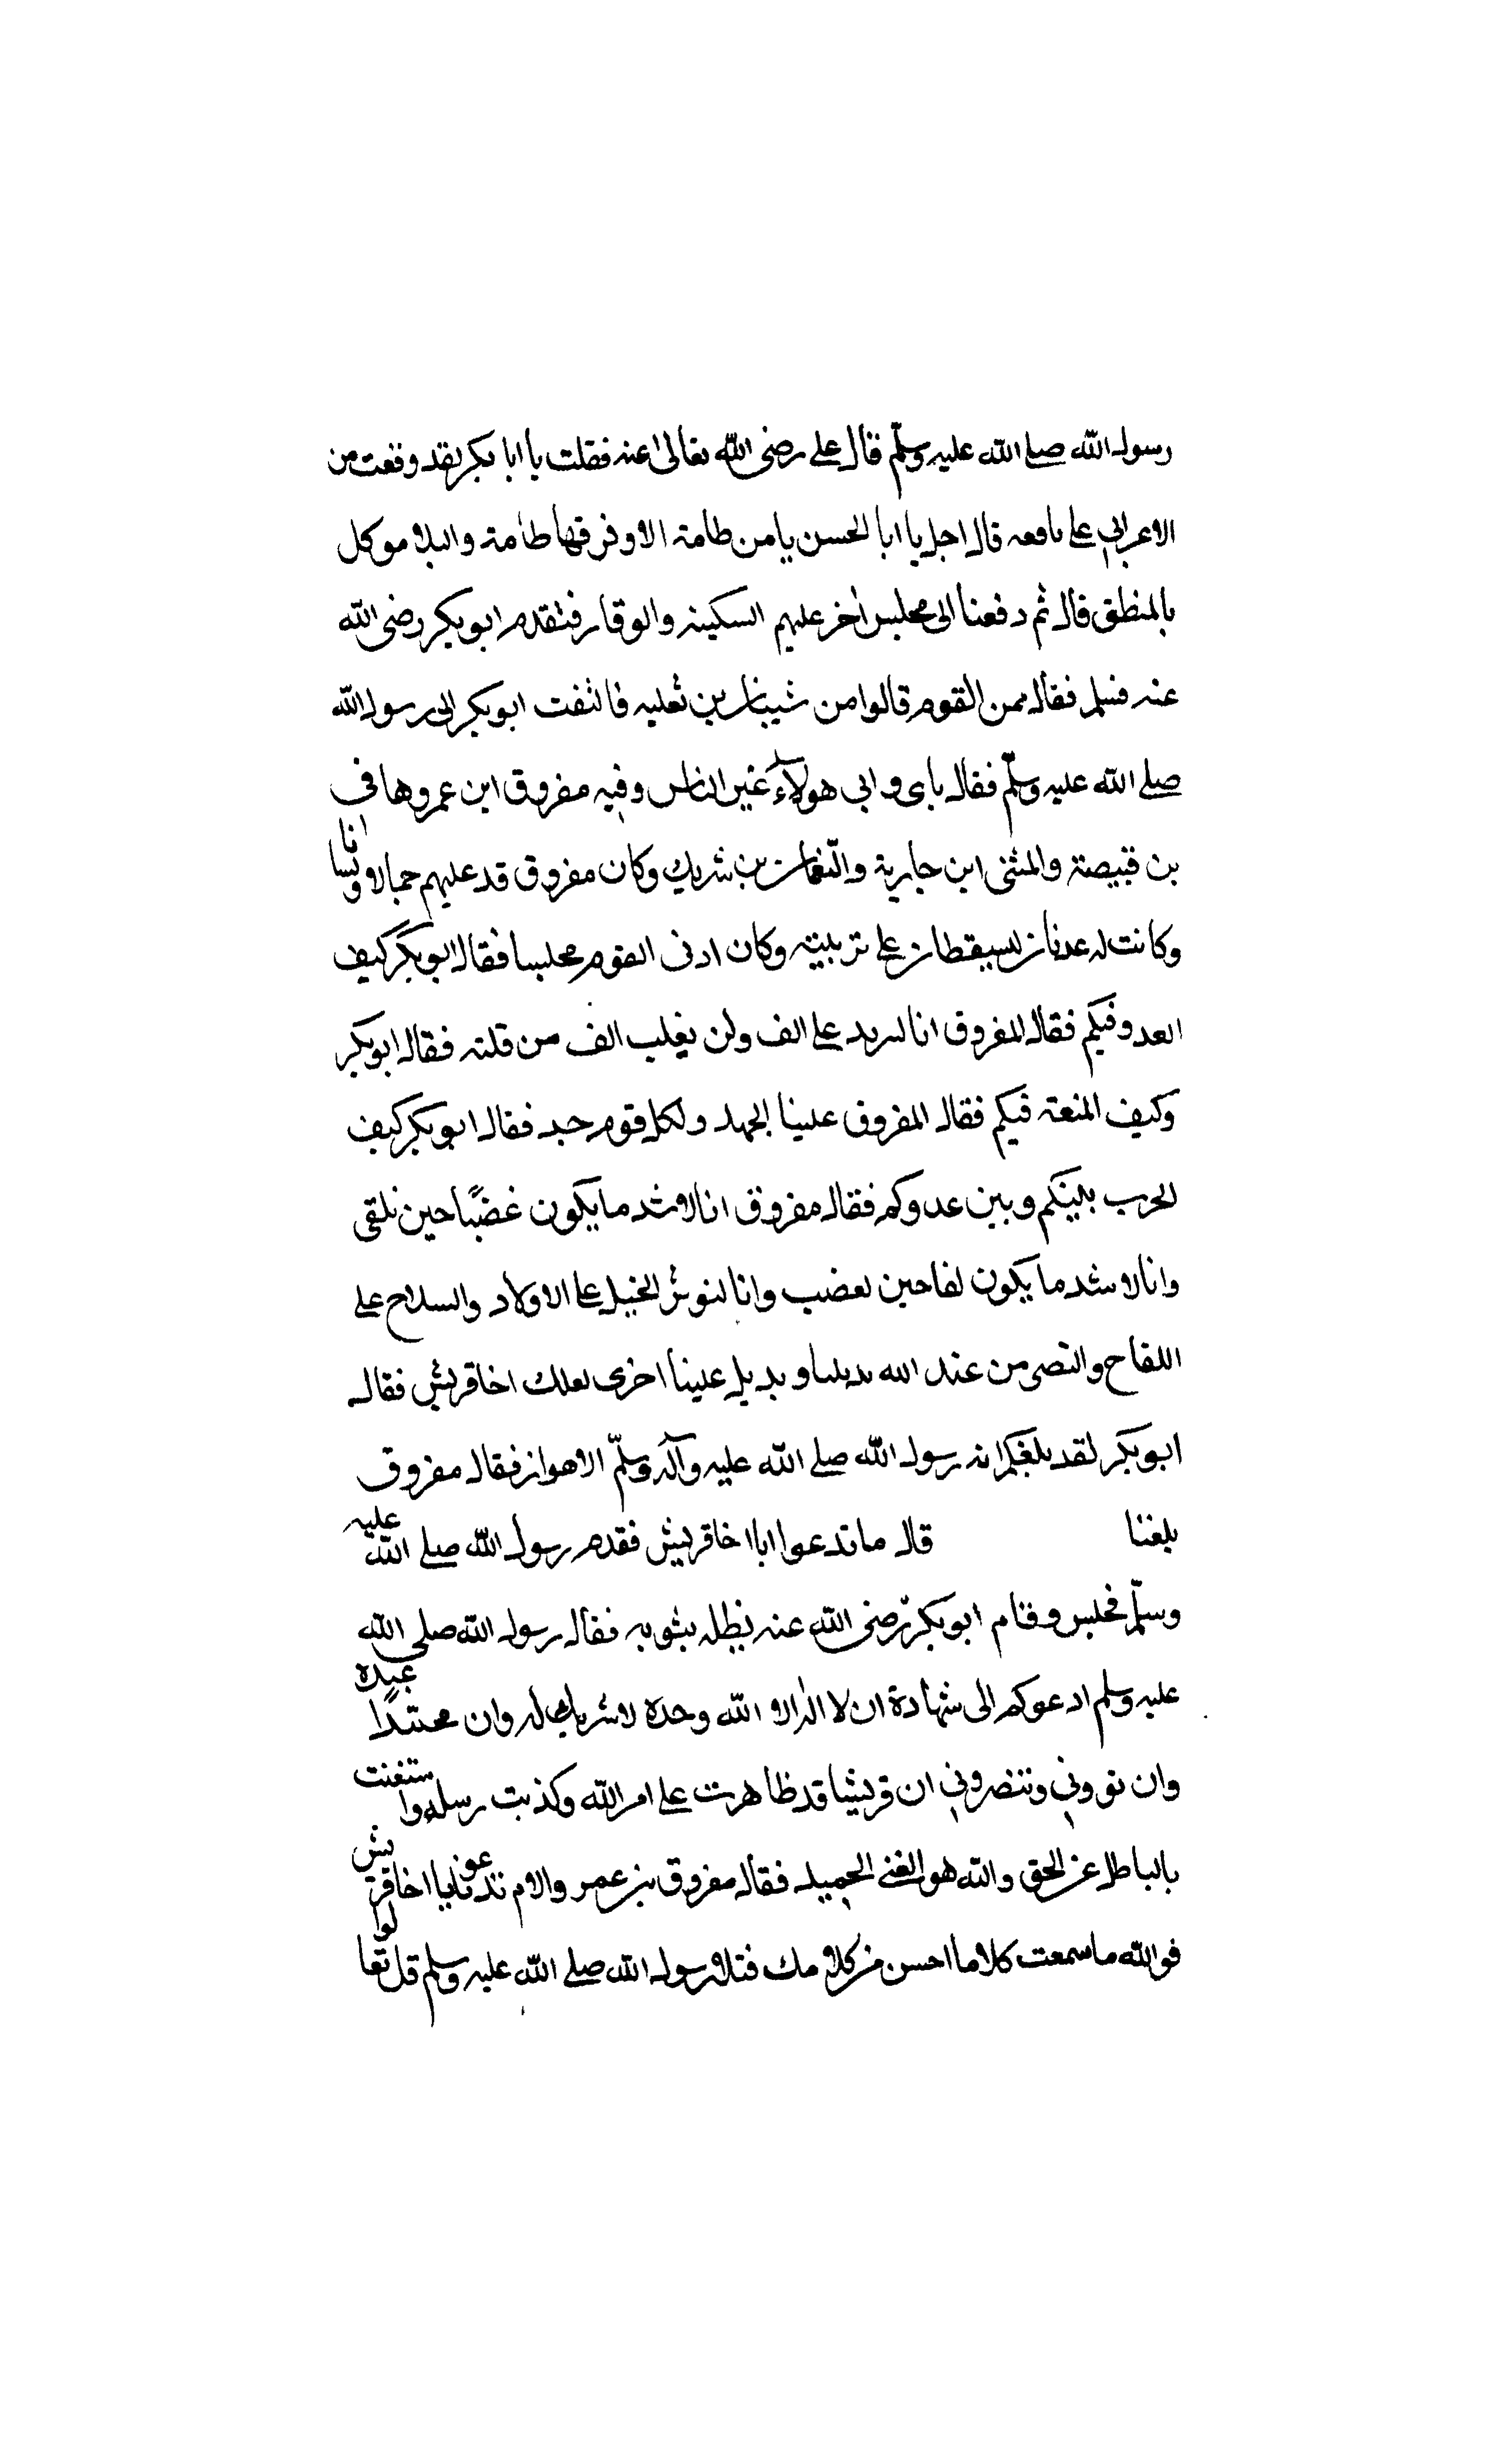 رسول الله صلى الله عليه وسلم قال على رضى الله تعالى عنه فقلت يا ابا بكر لقد وقعت من
الاعرابي على باقعه قال اجل يا ابا الحسن يا من طامة الا وفرقها طامة والبلا موكل
بالمنطق قال ثم دفعنا الى مجلس اخر عليهم السكينه والوقار فتقدم ابو بكر رضى الله
عنه فسلم فقال ممن القوم قالوا من شيبان بن ثعلبه فالتفت ابو بكر الى رسول الله
صلى الله عليه وسلم فقال بابى و ابى هولاء غير الناس وفيه مفروق ابن عمرو هانى
بن قبيصة والمثنى ابن حارية والنعمان بن شريك وكان مفروق قد عليهم جمالا ولسانا
وكانت له عدنان ليسقطان على تربيته وكان ادنى القوم مجلسا فقال ابو بكر كيف
العدو فيكم فقال المفروق انا لنريد على الف ولن يغلب الف من قلته فقال ابو بكر
وكيف المنعة فيكم فقال المفروق علينا الجهد ولكل قوم جد فقال ابو بكر كيف
الحرب بينكم وبين عدوكم فقال مفروق انا لاشد ما يكون غضبًا حين نلقى
وانا لاشد ما يكون لقا حين نغضب وانا لنوثر الخيل على الاولاد والسلاح على
اللقاح والنصر من عند الله يديلنا و يديل علينا اخرى لعلك اخا قريش فقال
ابو بكر لقد بلغكم انه رسول الله صلى الله عليه وآله وسلم الا هو اذ فقال مفروق
بلغنا قال ما تدعوا ايا اخا قريش فقدم رسول الله صلى الله عليه
وسلم فجلس وقام ابو بكر رضى الله عنه يظله بثوبه فقال رسول الله صلى الله
عليه وسلم ادعوكم الى شهادة ان لا اله الا الله وحده لا شريك له وان محمدًا عبده
وان توونى وتنصرونى ان قريشا قد ظاهرت على امر الله وكذبت رسله واستغنت
بالباطل عن الحق والله هو الغنى الحميد فقال مفروق بن عمر والام تدعونا يا اخا قريش
فوالله ما سمعت كلاما احسن من كلامك فتلا رسول الله صلى الله عليه وسلم قل تعالوا